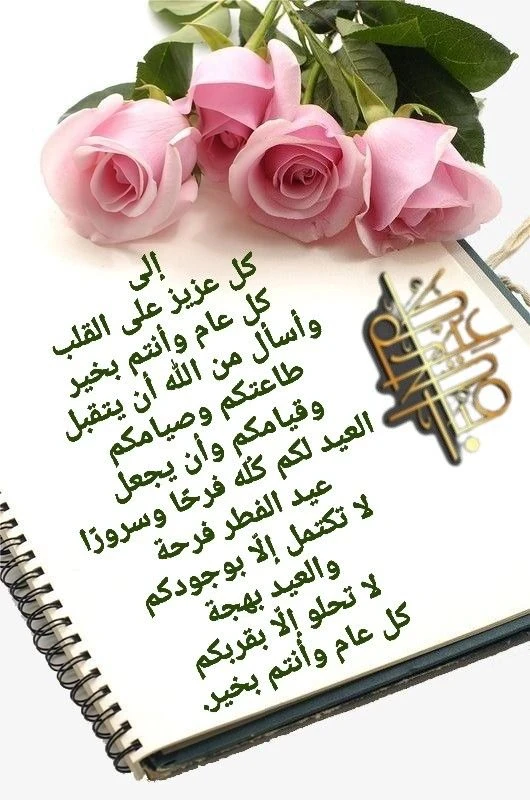 إلى
كل عزيز على القلب
كل عام وأنتم بخير
وأسأل من الله أن يتقبل
طاعتكم وصيامكم
وقيامكم وأن يجعل
العيد لكم كله فرحًا وسرورًا
عيد الفطر فرحة
لا تكتمل إلّا بوجودكم
والعيد بهجة
لا تحلو إلّا بقربكم
كل عام وأنتم بخير.